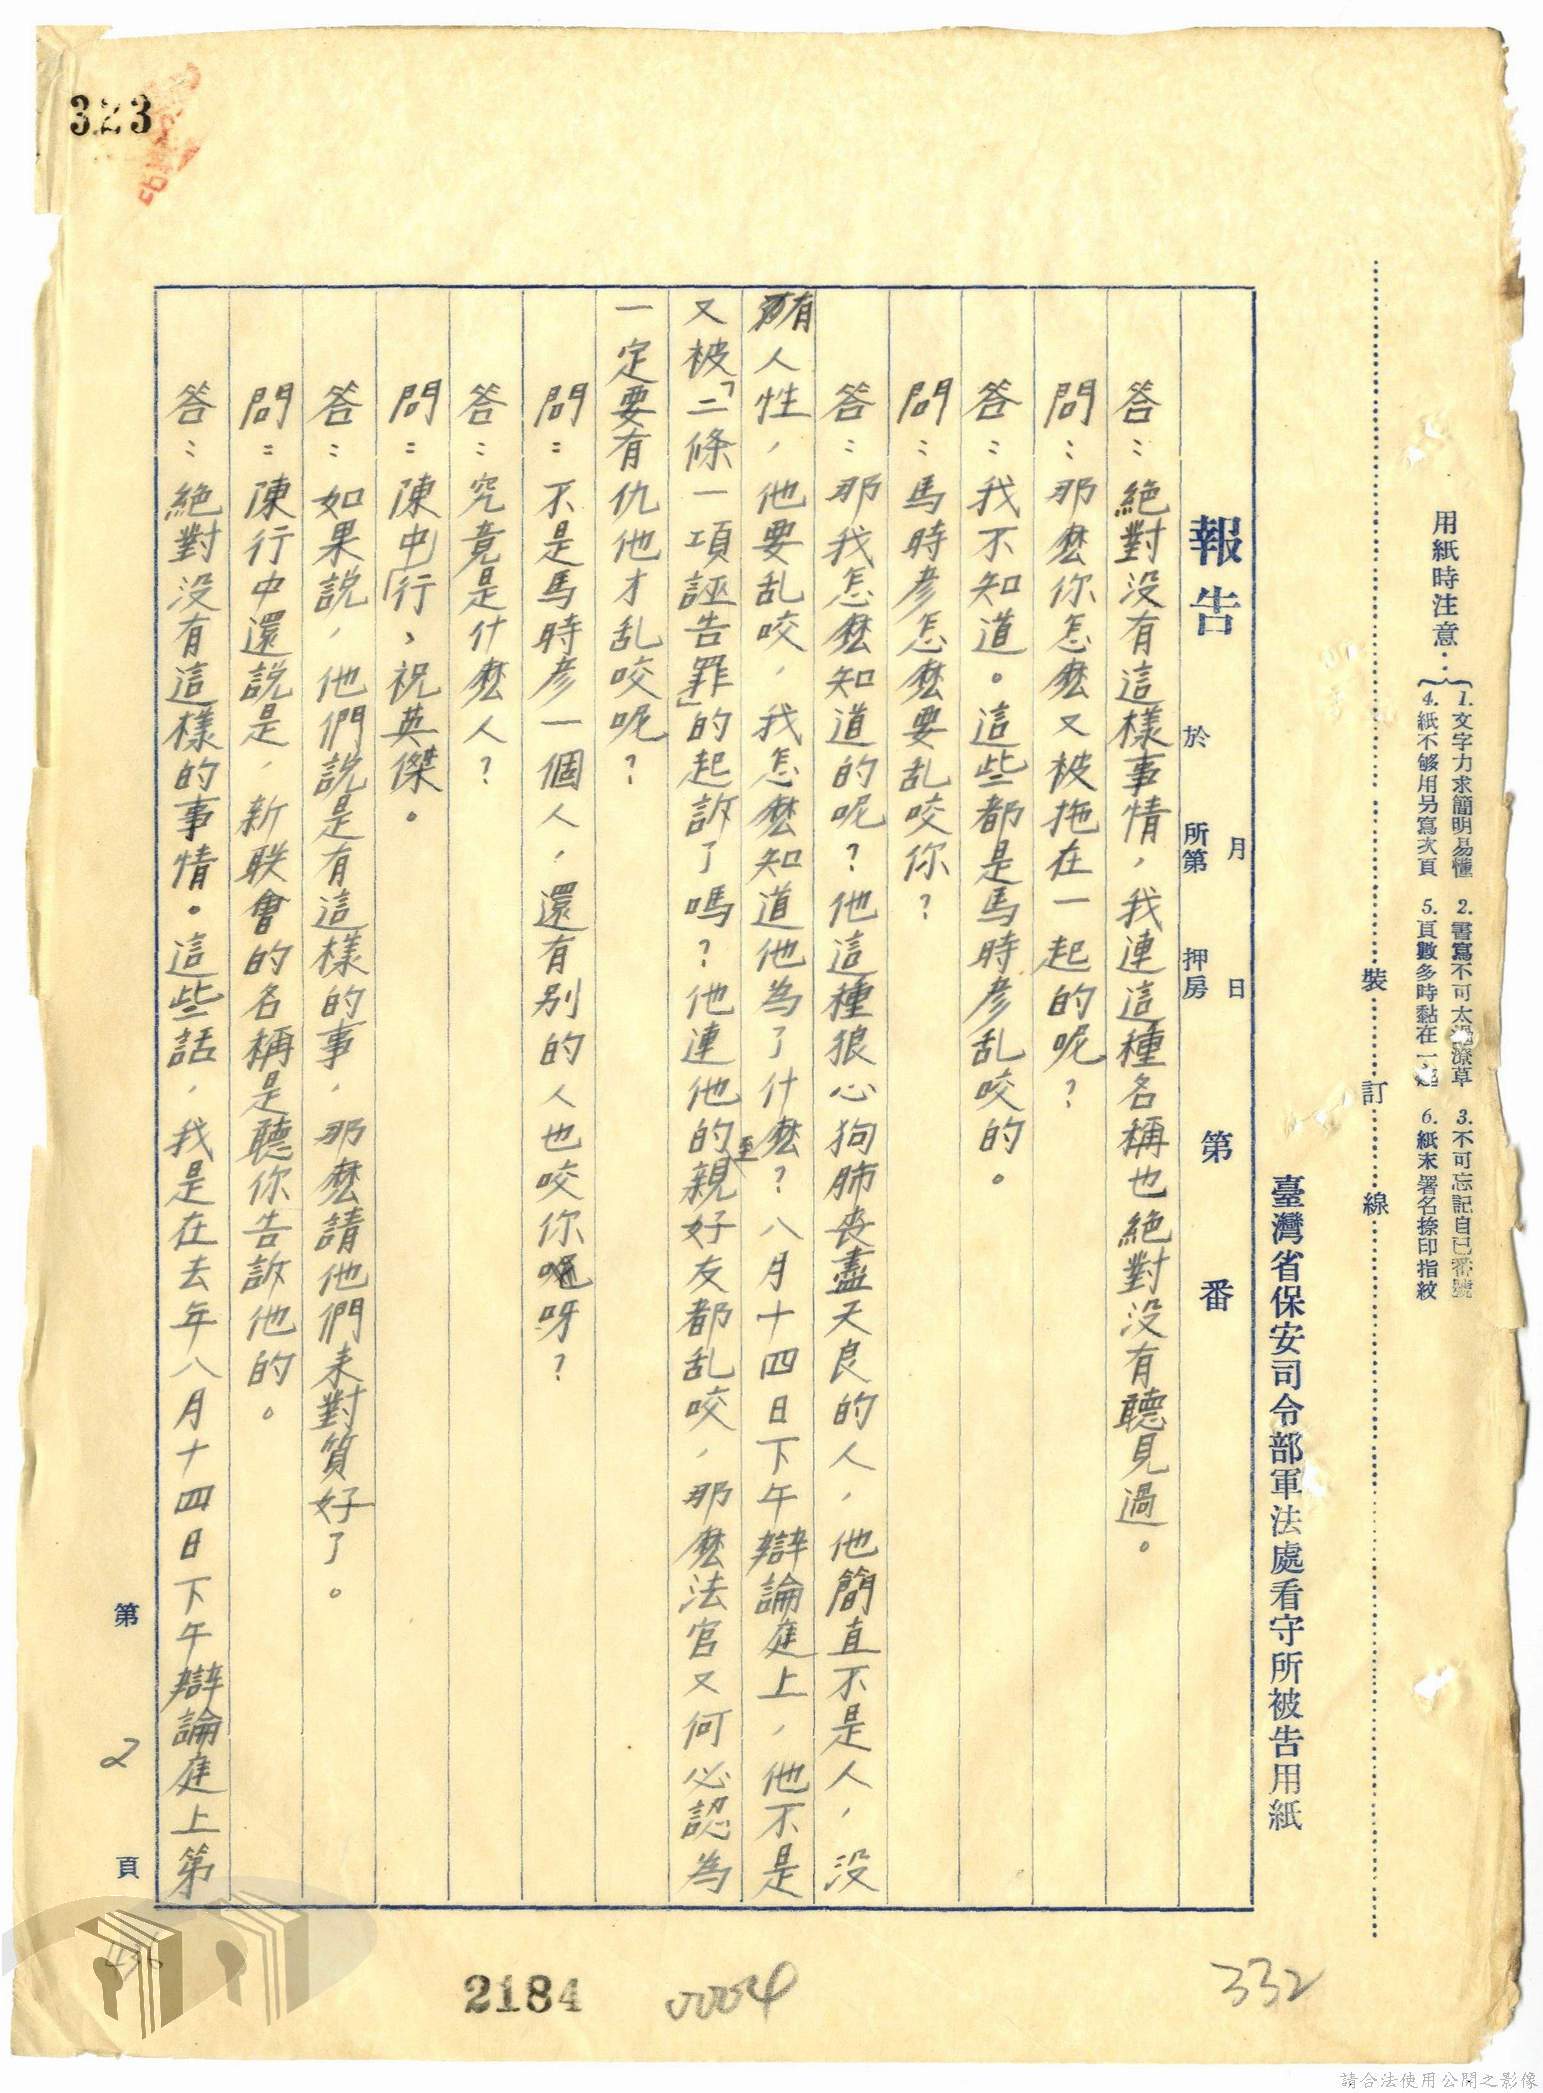 323
用紙時注意：
1. 文字力求簡明易懂 2. 書寫不可太過潦草 3. 不可忘記自己番號
4. 紙不够用另寫次頁 5. 頁數多時黏在一起 6. 紙末署名捺印指紋
裝 訂 線
臺灣省保安司令部軍法處看守所被告用紙
報告 於 月 日
所第 押房 第 番
答：絕對没有這樣事情，我連這種名稱也絕對没有聽見過。
問：那麽你怎麽又被拖在一起的呢？
答：我不知道。這些都是馬時彦乱咬的。
問：馬時彦怎麽要乱咬你？
答：那我怎麽知道的呢？他這種狼心狗肺喪盡天良的人，他簡直不是人，没
有人性，他要乱咬，我怎麽知道他為了什麽？八月十四日下午辯論庭上，他不是
又被「二條一項誣告罪」的起訴了嗎？他連他的至親好友都乱咬，那麽法官又何必認為
一定要有仇他才乱咬呢？
問：不是馬時彦一個人，還有別的人也咬你呀？
答：究竟是什麽人？
問：陳中行、祝英傑。
答：如果説，他們說是有這樣的事，那麽請他們来對質好了。
問：陳行中還説是，新联會的名稱是聽你告訴他的。
答：絕對没有這樣的事情。這些話，我是在去年八月十四日下午辯論庭上第
第 2 頁
2184
0004
332
請合法使用公開之影像